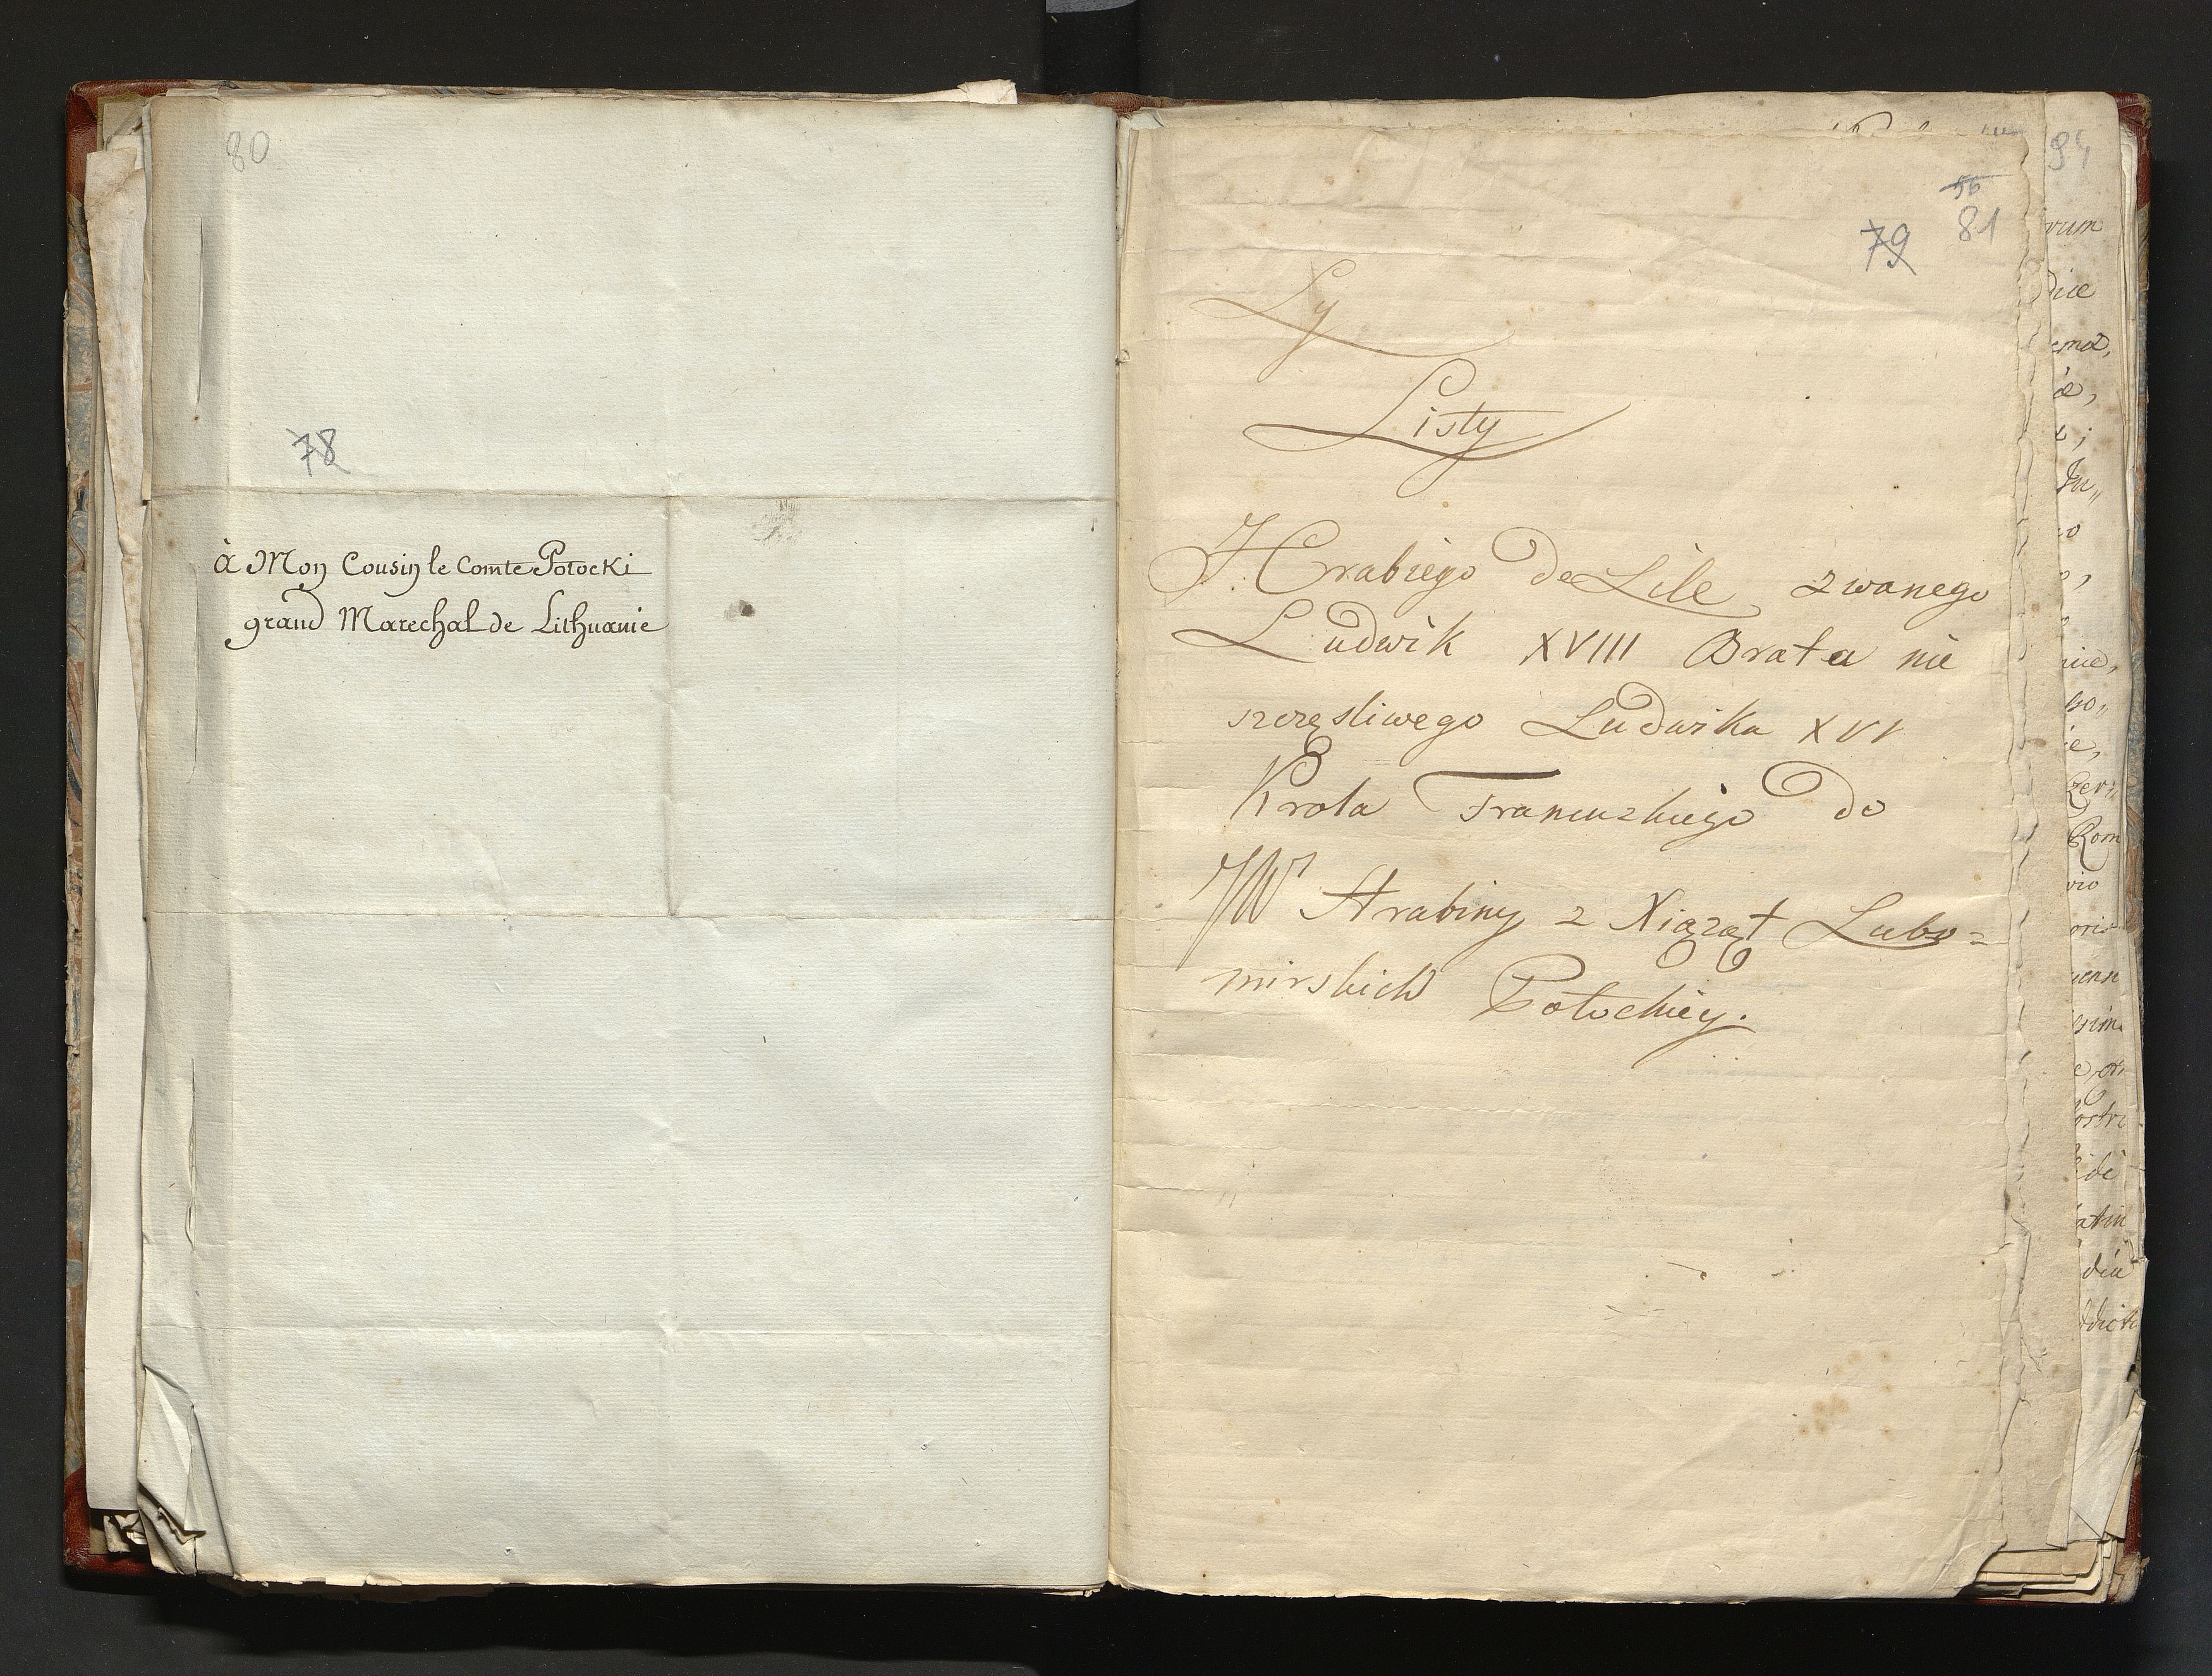 80
78
à Mon Cousin le Comte Potocki
grand Marechal de Lithuanie
56
81
79
Ly
Listy
Hrabiego de Lile zwanego
Ludwik XVIII Brata nie
szczęsliwego Ludwika XVI
Krola Francuzkiego do
JW Hrabiny z Xiąząt Lubo=
mirskich Potockiey.
94